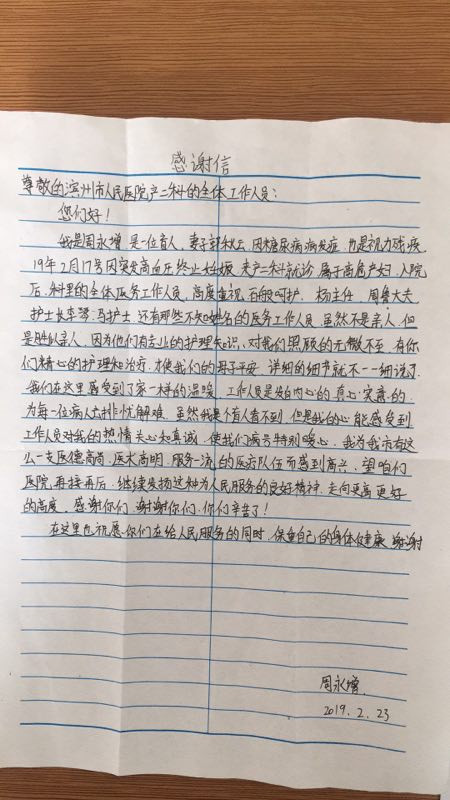 感谢信
尊敬的滨州市人民医院产二科的全体工作人员:
您们好!
我是周永增 是一位盲人,妻子 因糖尿病病发症,也是视力残疾
19年2月17号因突发高血压终止妊娠 来产二科就诊 属于高危产妇 入院
后,科里的全体医务工作人员,高度重视,百般呵护,杨主任,周鲁大夫
护士长李 马护士 还有那些不知姓名的医务工作人员,虽然不是亲人,但
是胜似亲人,因为他们有专业的护理知识,对我们照顾的无微不至,有你
们精心的护理和治疗,才使我们的母子平安 详细的细节就不一一细说了
我们在这里感受到了家一样的温暖,工作人员是发自内心的 真心实意的,
为每一位病人排忧解难,虽然我是个盲人看不到,但是我的心能感受到
工作人员对我的热情 关心和真诚,使我们病号特别暖心,我为我市有这
么一支医德高尚,医术高明,服务一流的医疗队伍而感到高兴,望咱们
医院,再接再后,继续发扬这种为人民服务的良好精神,走向更高更好
的高度,感谢你们 谢谢你们,你们辛苦了!
在这里也祝愿你们在给人民服务的同时,保重自己的身体健康,谢谢
周永增
2019.2.23